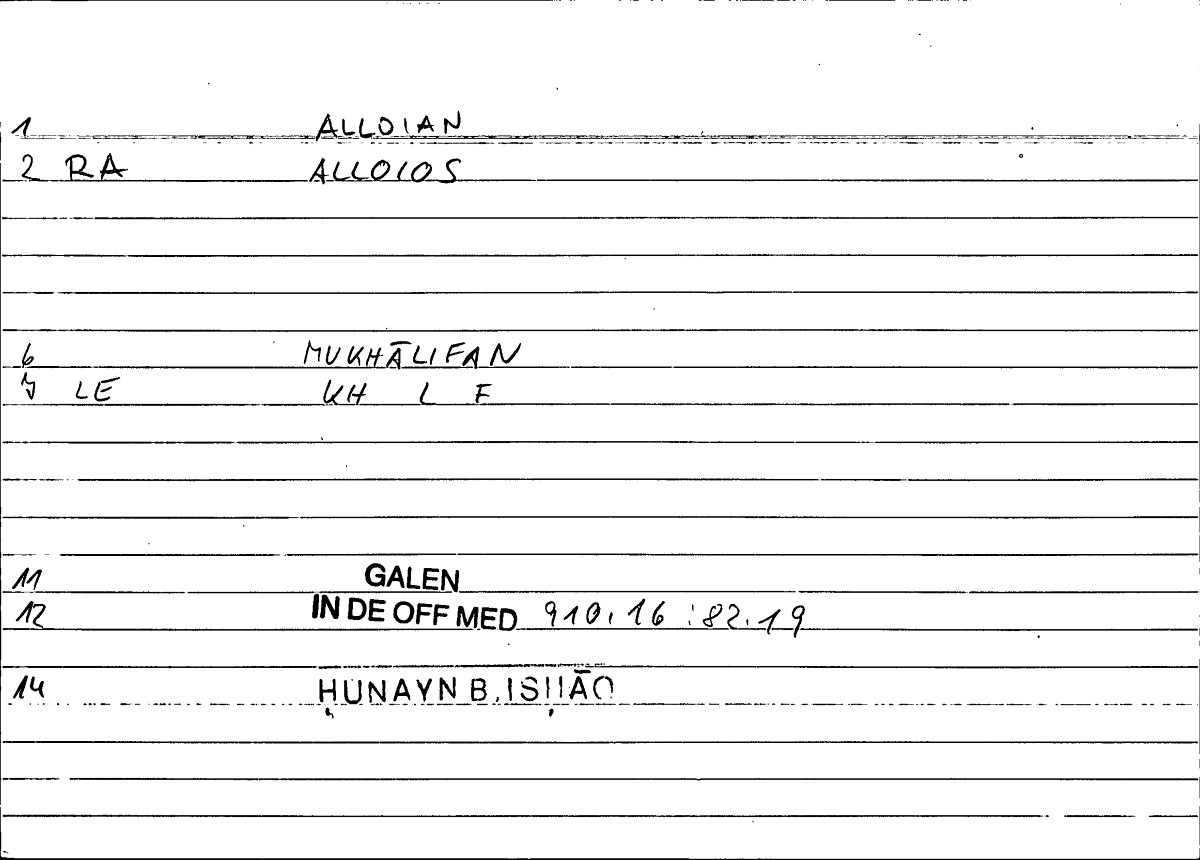 1 ALLOIAN
2 RA ALLOIOS
6 MUKHĀLIFAN
7 LE KH L F
11 GALEN
12 IN DE OFF MED 910.16 :82.19
14 ḤUNAYN B. ISḤĀQ